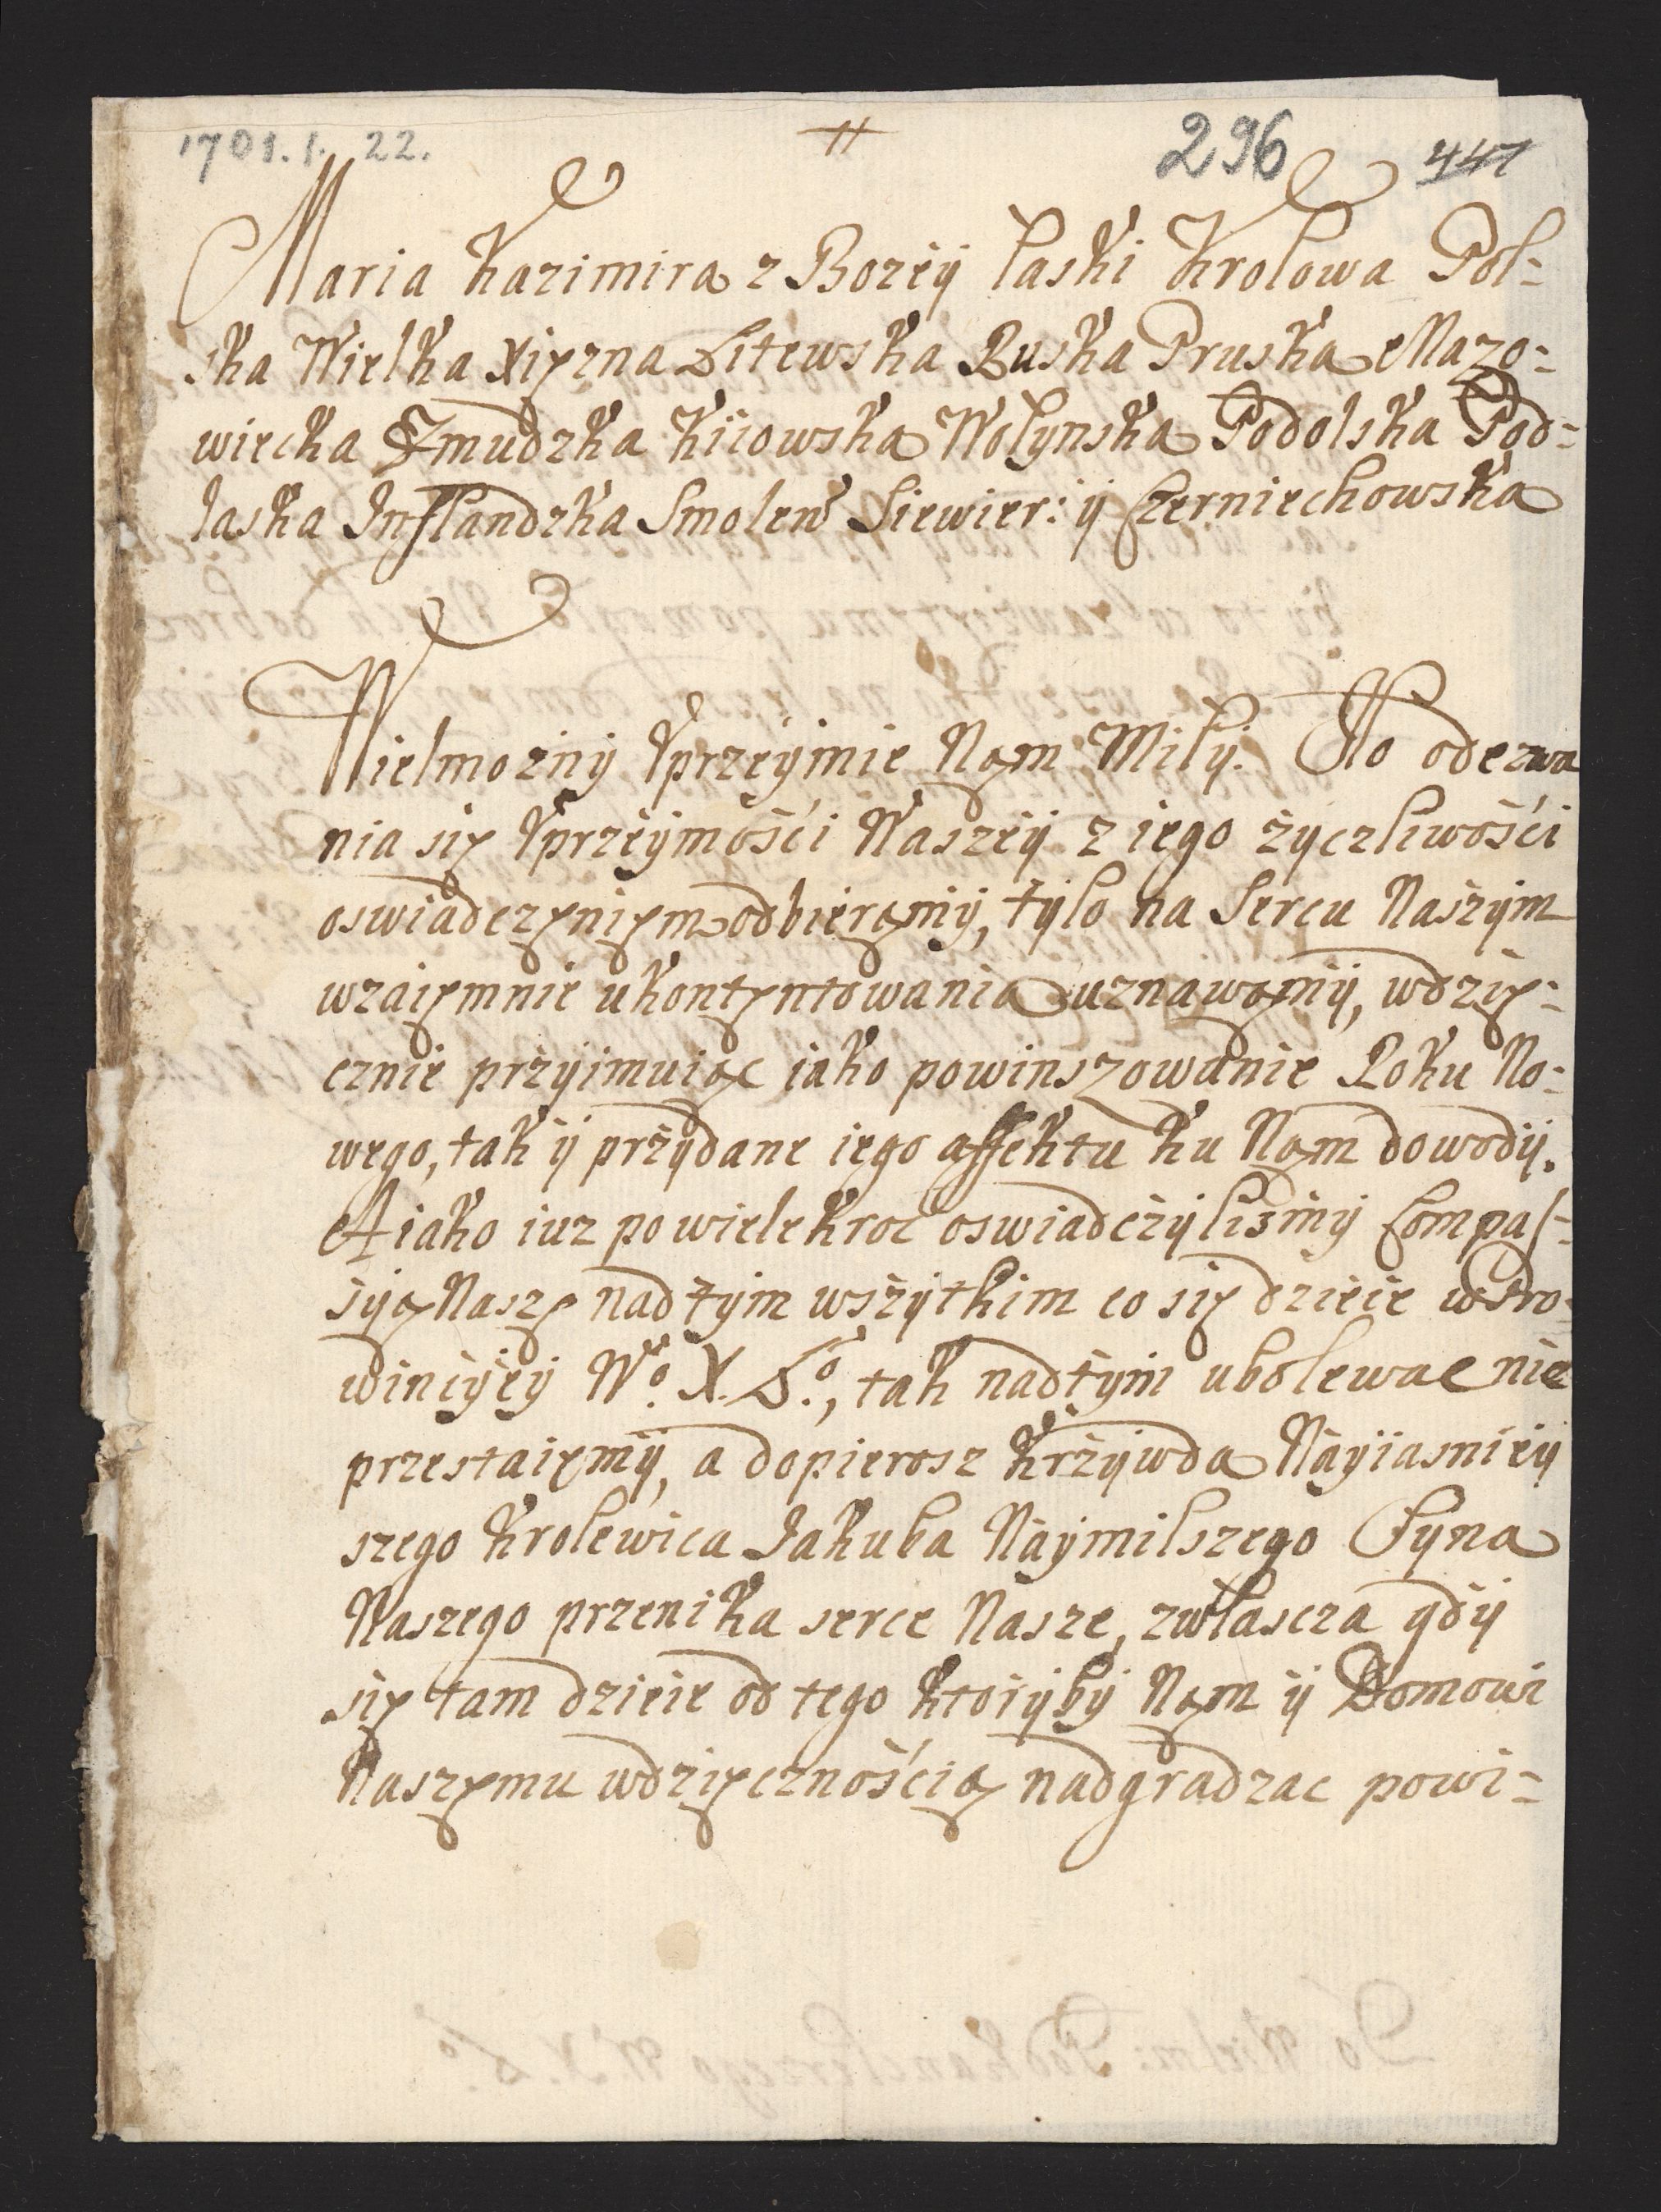 1701.1. 22.
296
447
Maria Kazimira z Bozey łaski Krolowa Pol-
ska Wielka Xięzna Litewska Ruska Pruska Mazo-
wiecka Zmudzka Kiiowska Wołynska Podolska Pod-
laska Inflandzka Smolen Siewier: ÿ Czerniechowska
Wielmozny Vprzeymie Nąm Miły. Ilo odezwa
nia się Vprzeymości Waszey z iego życzliwości
oswiadczęnięm odbierąmy, tylo na Sercu Naszym
wzaięmnie ukontęntowania uznawąmy, wdzię-
cznie przyimuiąc iako powinszowanie Roku No-
wego, tak ÿ przydane iego affektu ku Nąm dowody.
A iako iuz powielekroc oswiadczylismy Compas-
syą Naszę nad tym wszytkim co się dzieie w Pro-
wincyey Wº. X. Lº., tak nad tym ubolewac nie
przestaięmy, a dopierosz krzywda Nayiasniey
szego Krolewica Jakuba Naymilszego Syna
Naszego przenika serce Nasze, zwłascza gdy
się tam dzieie od tego ktoryby Nąm ÿ Domowi
Naszęmu wdzięcznością nadgradzac powi-